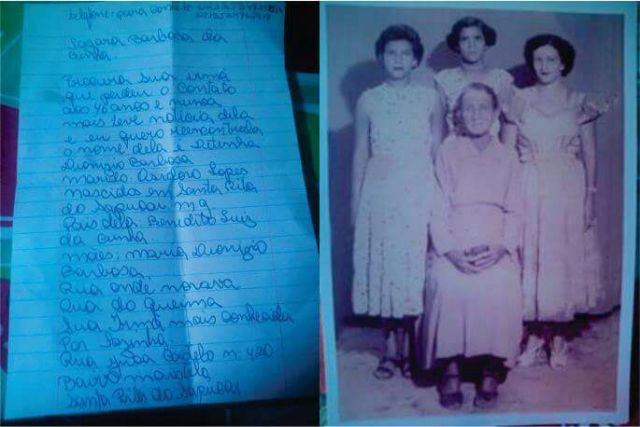 telefone: para contato
Sagara Barbosa da
Cunha.
Procura sua irmã
que perdeu o contato
aos 40 anos e nunca
mais teve noticia dela
e eu quero reencontrala
o nome dela e
Dionizio Barbosa
marido: Lopes
nascidas em Santa Rita
do Sapucai. m.g.
Pais dela: Benedito Luiz
da Cunha
mães: maria Dionizio
Barbosa.
Rua onde morava
Rua do Queima
Sua Irmã mais conhecida
Por
Rua n: 420
Bairro
Santa Rita do Sapucai